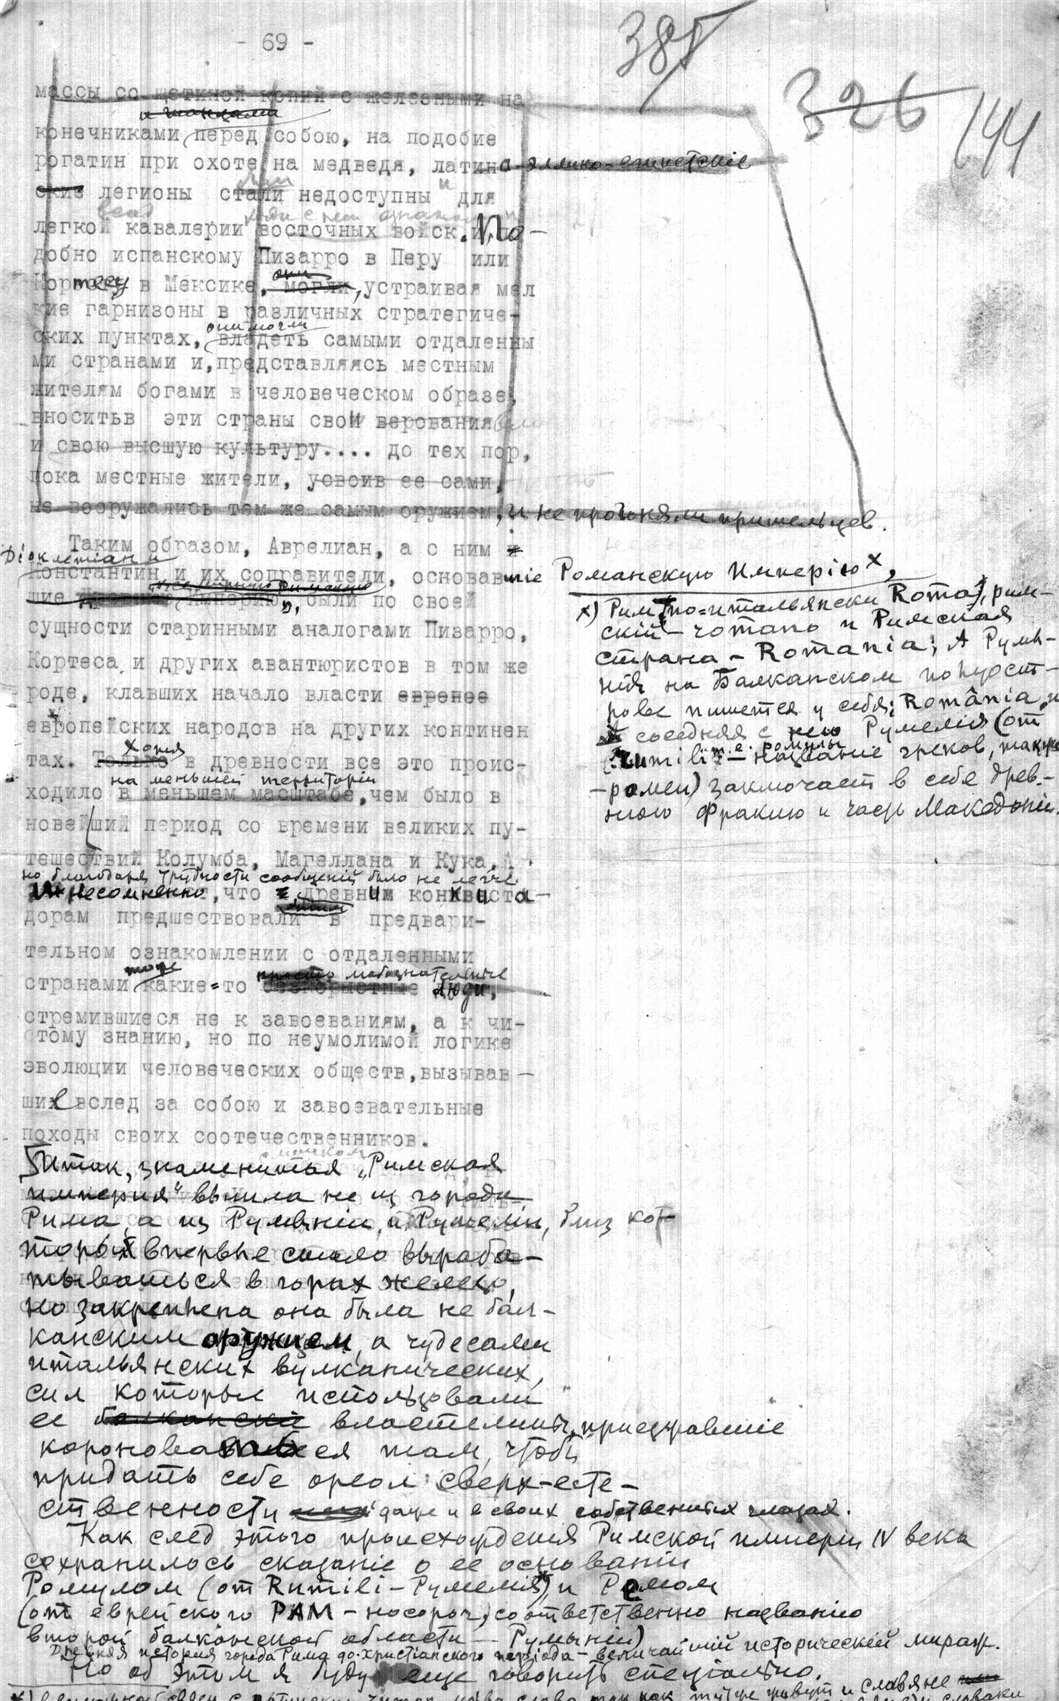 - 69 -
385
326
144
массы со щетиной копий с железными на
конечниками перед собою, на подобие
рогатин при охоте на медведя, латино-эллино-египетские
ские легионы стали недоступны для
легкой кавалерии восточных войск. По-
добно испанскому Пизарро в Перу или
Кортесу в Мексике, они могли, устраивая мел
кие гарнизоны в различных стратегиче-
ских пунктах, они могли владеть самыми отдаленны
ми странами и, представляясь местным
жителям богами в человеческом образе,
вносить в эти страны свои верования
и свою высшую культуру.... до тех пор,
пока местные жители, усвоив ее сами,
не вооружались тем же самым оружием, и не прогоняли пришельцев.
Таким образом, Аврелиан, а с ним
Диоклетиан и
Константин и их соправители, основавшие Романскую Империю x,
шие империю, были по своей
сущности старинными аналогами Пизарро,
Кортеса и других авантюристов в том же
роде, клавших начало власти евренее
европейских народов на других континен
тах. Только хотя в древности все это проис-
на меньшей территории
ходило в меньшем масштабе, чем было в
новейший период со времени великих пу-
тешествий Колумба, Магеллана и Кука,
но благодаря трудности сообщений было не легче
несомненно, что древним конкиста-
дорам предшествовали в предвари-
тельном ознакомлении с отдаленными
странами тоже какие-то просто любознательные бескорыстные люди,
стремившиеся не к завоеваниям, а к чи-
стому знанию, но по неумолимой логике
эволюции человеческих обществ, вызывав-
шие вслед за собою и завоевательные
походы своих соотечественников.
x) Рим по-итальянски Roma, рим-
скій - romano и Римская
страна - Romania; А Румы-
нія на Балканском полуост-
рове пишется у себя: România, и
соседняя с нею Румелия (от
Rumili - т.е. ромулы - название греков, также
-ромеи) заключает в себе древ-
нюю Фракию и часть Македоніи.
Итак, знаменитая "Римская
империя" вышла не из города
Рима, а из Румыніи и Румеліи, близ кот-
торой впервые стало выраба-
тываться в горах железо,
но закреплена она была не бал-
канским оружием, а чудесами
итальянских вулканических
сил, которые использовали
ее балканские властелины, приезжавшие
короноваться там, чтоб
придать себе ореол сверх-есте-
ственности даже и в своих собственных глазах.
Как след этого происхождения Римской империи IV века
сохранилось сказаніе о ее основаніи
Ромулом (от Rumili - Румелия) и Ремом
(от еврейского РАМ - носорог, соответственно названію
второй балканской области - Румыніи)
Древняя история города Рима до-христианского періода - величайшій исторический мираж.
Но об этом я буду еще говорить спеціально.